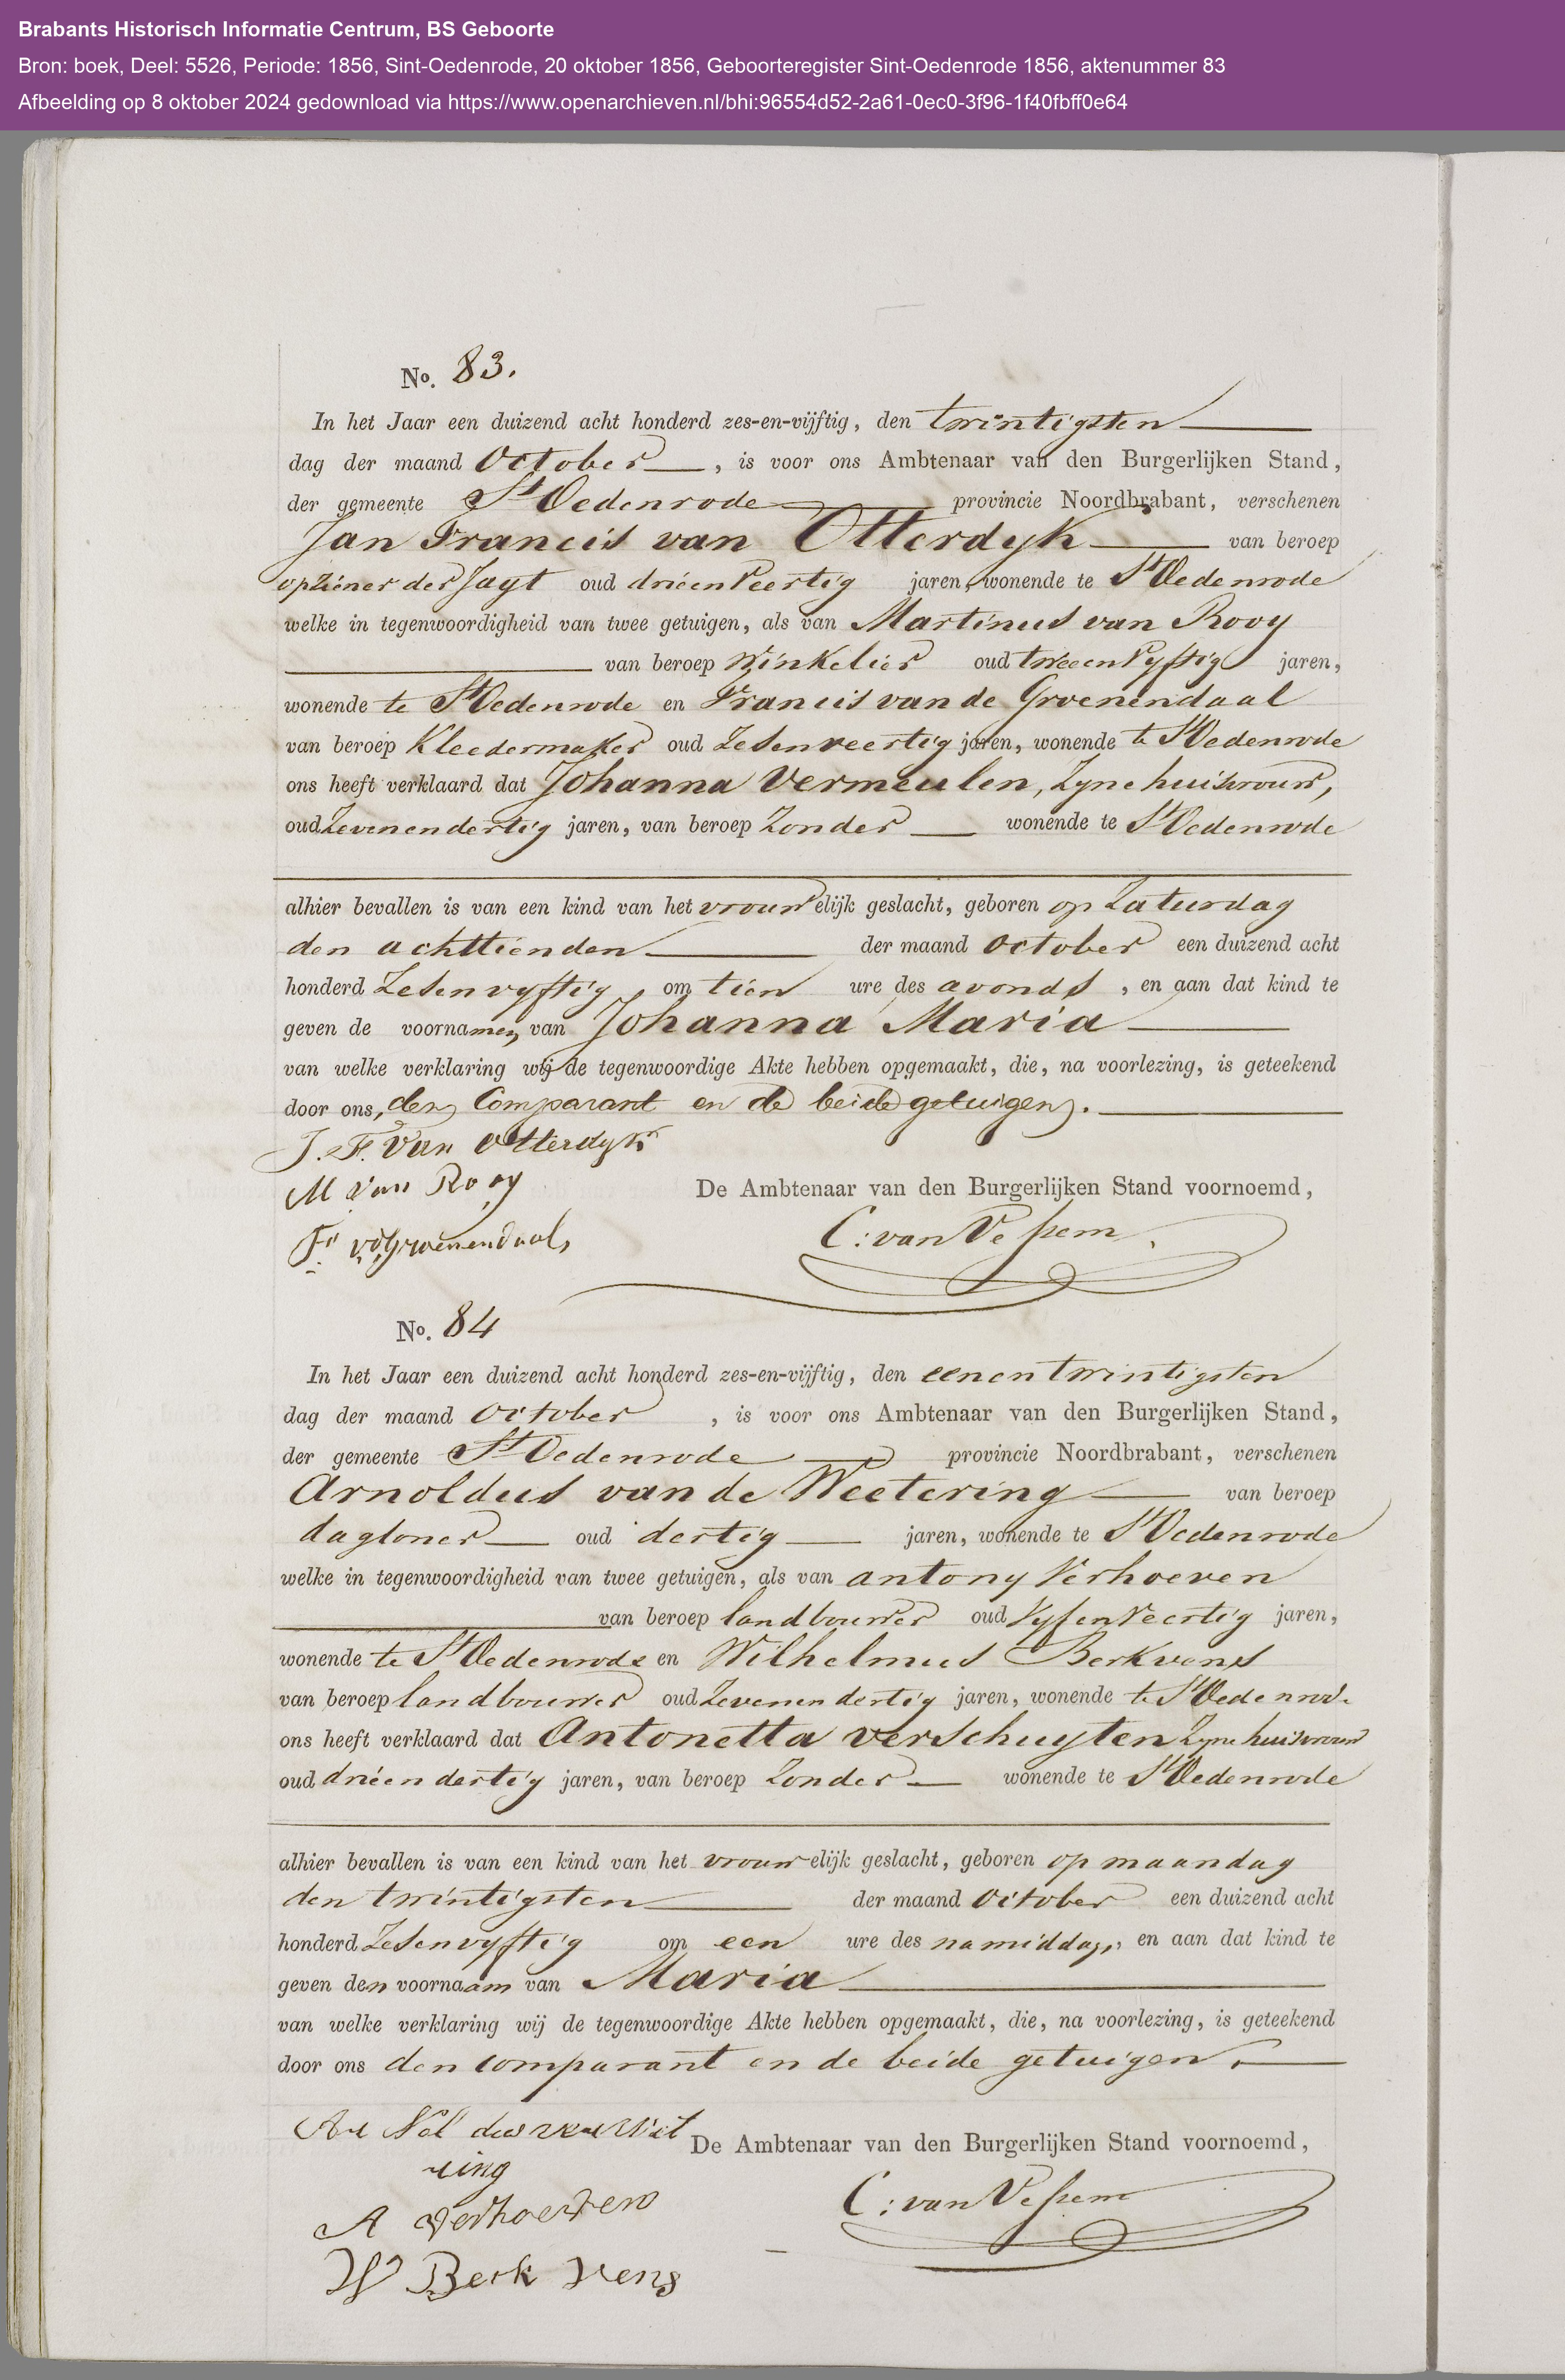 Brabants Historisch Informatie Centrum, BS Geboorte
Bron: boek, Deel: 5526, Periode: 1856, Sint-Oedenrode, 20 oktober 1856, Geboorteregister Sint-Oedenrode 1856, aktenummer 83
Afbeelding op 8 oktober 2024 gedownload via https://www.openarchieven.nl/bhi:96554d52-2a61-0ec0-3f96-1f40fbff0e64
No. 83.
In het Jaar een duizend acht honderd zes-en-vijftig, den twintigsten
dag der maand October, is voor ons Ambtenaar van den Burgerlijken Stand,
der gemeente St Oedenrode provincie Noordbrabant, verschenen
Jan Francis van Otterdyk van beroep
opziener der Jagt oud drieenveertig jaren, wonende te St Oedenrode
welke in tegenwoordigheid van twee getuigen, als van Martinus van Rooy
van beroep Winkelier oud tweeenvyftig jaren,
wonende te St Oedenrode en Francis van de Groenendaal
van beroep Kleedermaker oud Zesenveertig jaren, wonende te St Oedenrode
ons heeft verklaard dat Johanna Vermeulen, Zyne huisvrouw,
oud Zevenendertig jaren, van beroep Zonder wonende te St Oedenrode
alhier bevallen is van een kind van het vrouwelijk geslacht, geboren op Zaturdag
den achttienden der maand October een duizend acht
honderd Zesenvyftig om tien ure des avonds, en aan dat kind te
geven de voornamen van Johanna Maria
van welke verklaring wij de tegenwoordige Akte hebben opgemaakt, die, na voorlezing, is geteekend
door ons, den Comparant en de beide getuigen.
J. F. Van Otterdyk
M van Rooy
Fs vdGroenendaal,
De Ambtenaar van den Burgerlijken Stand voornoemd,
C: van Vessem
No. 84
In het Jaar een duizend acht honderd zes-en-vijftig, den eenentwintigsten
dag der maand October, is voor ons Ambtenaar van den Burgerlijken Stand,
der gemeente St Oedenrode provincie Noordbrabant, verschenen
Arnoldus van de Weetering van beroep
dagloner oud dertig jaren, wonende te St Oedenrode
welke in tegenwoordigheid van twee getuigen, als van antony Verhoeven
van beroep landbouwer oud Vyfenveertig jaren,
wonende te St Oedenrode en Wilhelmus Berkvens
van beroep landbouwer oud Zevenendertig jaren, wonende te St Oedenrode
ons heeft verklaard dat Antonetta verschuyten Zyne huisvrouw
oud drieendertig jaren, van beroep Zonder wonende te St Oedenrode
alhier bevallen is van een kind van het vrouwelijk geslacht, geboren op maandag
den twintigsten der maand October een duizend acht
honderd Zesenvyftig om een ure des namiddags, en aan dat kind te
geven den voornaam van Maria
van welke verklaring wij de tegenwoordige Akte hebben opgemaakt, die, na voorlezing, is geteekend
door ons den comparant en de beide getuigen.
ring
A verhoeven
W Berk vens
De Ambtenaar van den Burgerlijken Stand voornoemd,
C: van Vessem